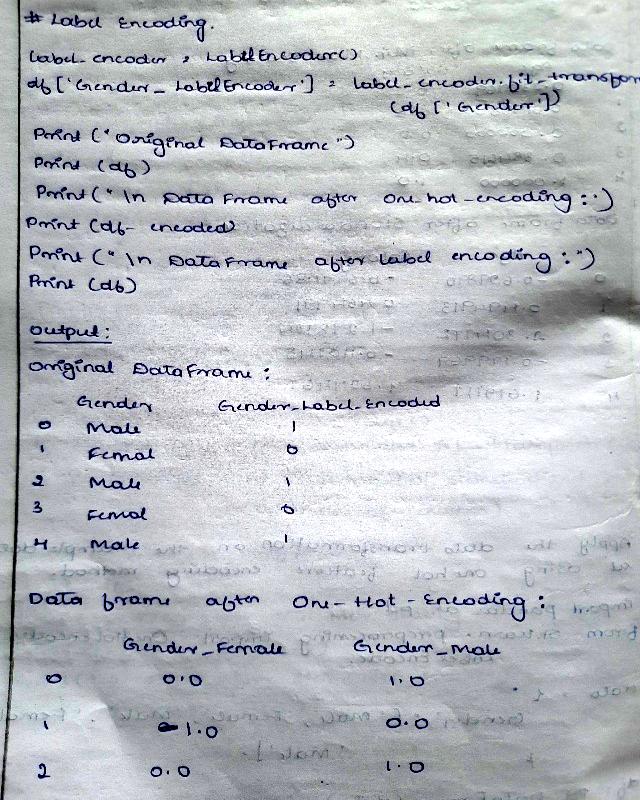 # Label Encoding.
label_encoder = LabelEncoder()
df['Gender_LabelEncoder'] = label_encoder.fit_transform
(df['Gender'])
Print ("Original DataFrame")
Print (df)
Print ("\n DataFrame after one-hot-encoding :")
Print (df-encoded)
Print ("\n DataFrame after label encoding :")
Print (df)
output:
Original DataFrame :
Gender Gender_Label_Encoded
0 Male 1
1 Femal 0
2 Male 1
3 Femal 0
4 Male 1
Data frame after One-Hot-Encoding :
Gender_Female Gender_Male
0 0.0 1.0
1 1.0 0.0
2 0.0 1.0